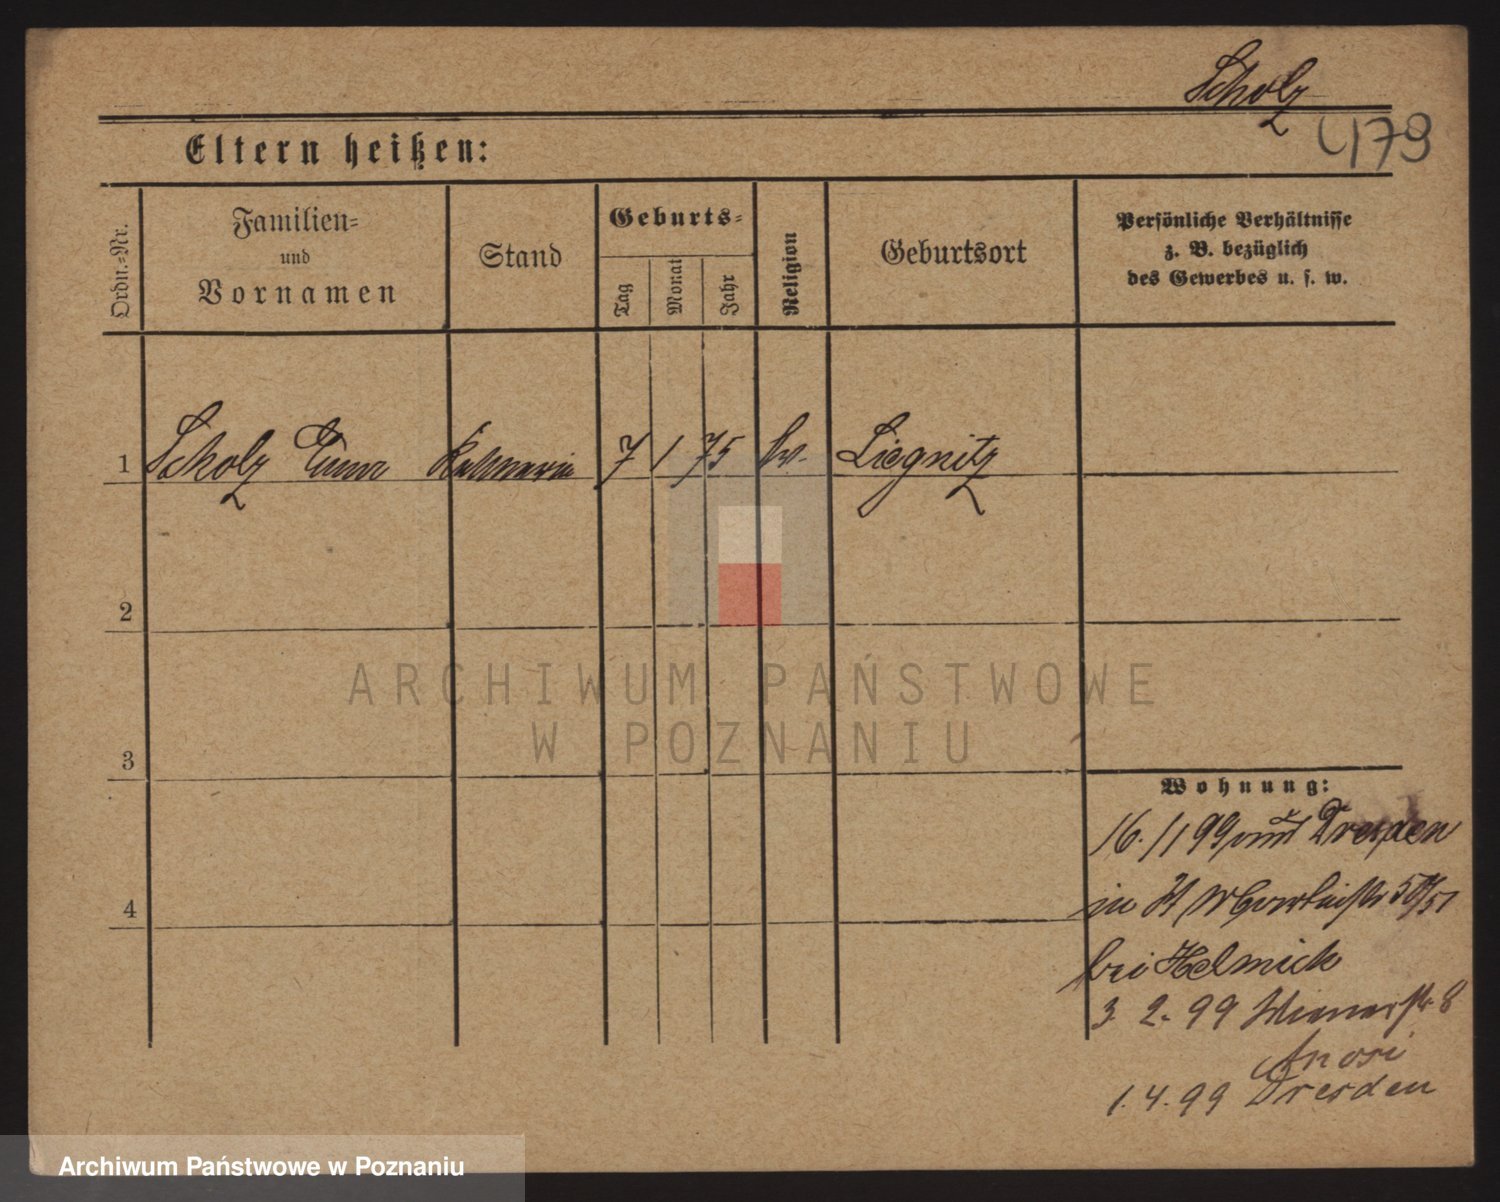 Scholz
479
Eltern heißen:
Ordn.-Nr.
Familien-
und
Vornamen
Stand
Geburts-
Tag
Monat
Jahr
Religion
Geburtsort
Persönliche Verhältnisse
z. B. bezüglich
des Gewerbes u. s. w.
1 Scholz Emma 7 1 75 ev. Liegnitz
2
ARCHIWUM PAŃSTWOWE
W POZNANIU
3
Wohnung:
16. /1 99 aus Dresden
in St
4
bei Helmich
3. 2. 99 Wienerstr. 8
1. 4. 99 Dresden
Archiwum Państwowe w Poznaniu